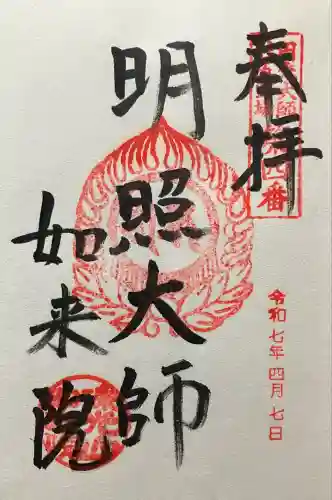 奉拝
明照大師
如来院
令和七年四月七日